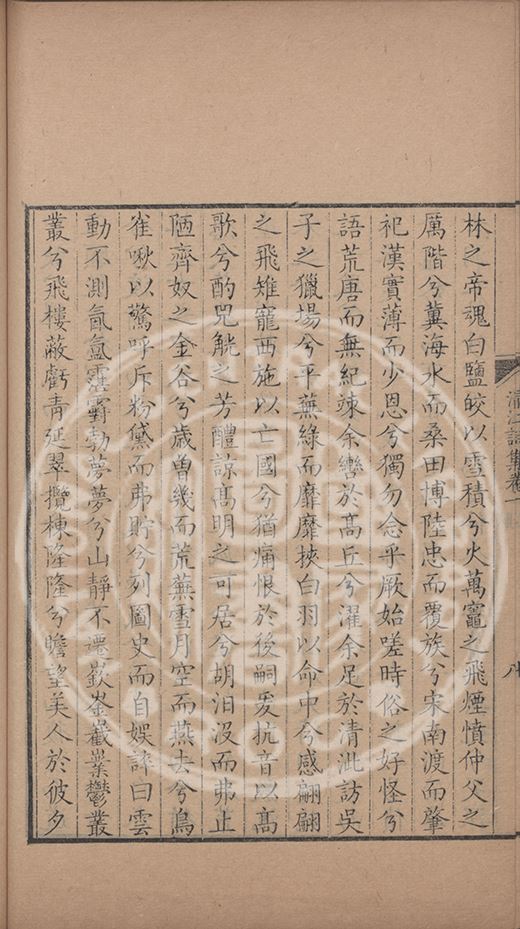 林之帝魂白鹽皎以雪積兮火萬竈之飛煙憤仲父之
厲階兮冀海水而桑田博陸忠而覆族兮宋南渡而肇
祀漢實薄而少恩兮獨勿念乎厥始嗟時俗之好怪兮
語荒唐而無紀竦余轡於高丘兮濯余足於清泚訪吳
子之獵場兮平蕪綠而靡靡挾白羽以命中兮感翩翩
之飛雉寵西施以亡國兮猶痛恨於後嗣爰抗音以髙
歌兮酌兕觥之芳醴諒髙明之可居兮胡汨沒而弗止
陋齊奴之金谷兮歲曽幾而荒蕪雪月空而燕去兮鳥
雀啾以驚呼斥粉黛而弗貯兮列圖史而自娛誶曰雲
動不測氤氳霮䨴勃夢夢兮山靜不遷嶔崟嶻嶪鬱叢
叢兮飛樓蔽虧青延翠攬棟隆隆兮瞻望美人於彼夕
清江詩集卷一
八